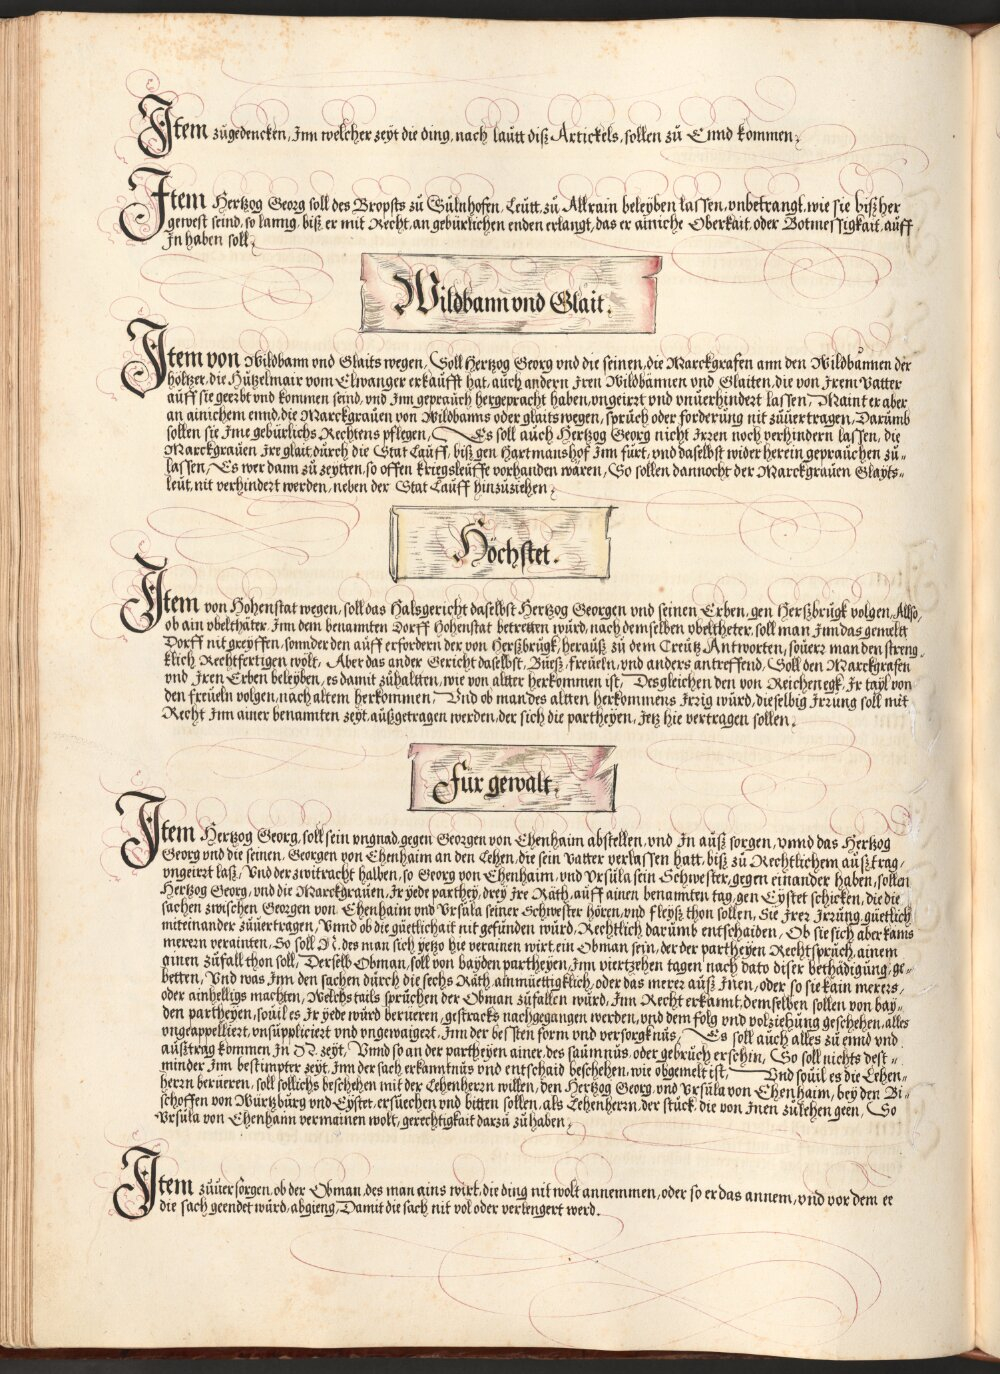 Item zůgedencken, Inn welcher zeyt die ding, nach laůtt diß Artickels, sollen zů Ennd kommen,
Item Hertzog Georg soll des Bropsts zů Sůlnhofen, Leůtt, zů Altrain beleyben lassen, vnbetrangt, wie sie bißher
gewest seind, so lanng, biß er mit Recht, an gebürlichen enden erlangt, das er ainiche Oberkait, oder Botmessigkait, auff
In haben soll,
Wildbann vnd Glait.
Item von Wildbann vnd Glaits wegen, Soll Hertzog Georg vnd die seinen, die Marckgrafen ann den Wildbännen der
höltzer, die Hützelmair vom Elwanger erkaůfft hat, aůch andern Iren Wildbännen vnd Glaiten, die von Irem Vatter
aůff sie geerbt vnd kommen seind, vnd Inn gepraůch hergepracht haben, vngeirrt vnd vnuerhindert lassen, Maint er aber
an ainichem ennd, die Marckgraůen von Wildbanns oder glaits wegen, sprůch oder forderůng nit zůuertragen, Darůmb
sollen sie Ime gebürlichs Rechtens pflegen, Es soll aůch Hertzog Georg nicht Irren noch verhindern lassen, die
Marckgraůen Ire glait, důrch die Stat Laůff, biß gen Hartmanshof Inn fůrt, vnd daselbst wider herein gepraůchen zů-
lassen, Es wer dann zů zeytten, so offen kriegsleůffe vorhanden wären, So sollen dannocht der Marckgraůen Glayts-
leůt, nit verhindert werden, neben der Stat Laůff hinzůziehen,
Höchstet.
Item von Hohenstat wegen, soll das Halsgericht daselbst Hertzog Georgen vnd seinen Erben, gen Herßbrůgk volgen, Also,
ob ain vbelthäter, Inn dem benannten Dorff Hohenstat betretten würd, nach demselben vbeltheter, soll man Inn das gemeltt
Dorff nit greyffen, sonnder den aůff erfordern der von Herßbrůgk, heraůß zů dem Creůtz Antworten, souerr man den streng-
klich Rechtfertigen wölt, Aber das ander Gericht daselbst, Bůeß, freůeln, vnd anders antreffend, Soll den Marckgrafen
vnd Iren Erben beleyben, es damit zůhaltten, wie von altter herkommen ist, Desgleichen den von Reichenegk, Ir tayl von
den freůeln volgen, nach altem herkommen, Vnd ob man des altten herkommens Irrig würd, dieselbig Irrůng soll mit
Recht Inn ainer benannten zeyt, aůßgetragen werden, der sich die partheyen, Jetz hie vertragen sollen,
Für gewalt.
Item Hertzog Georg, soll sein vngnad, gegen Georgen von Ehenhaim abstellen, vnd In aůß sorgen, vnnd das Hertzog
Georg vnd die seinen, Georgen von Ehenhaim an den Lehen, die sein Vatter verlassen hatt, biß zů Rechtlichem aůßtrag,
vngeirrt laß, Vnd der zwitracht halben, so Georg von Ehenhaim, vnd Vrsůla sein Schwester, gegen einander haben, sollen
Hertzog Georg, vnd die Marckgraůen, Ir yede parthey, drey Ire Räth, aůff ainen benannten tag, gen Eystet schicken, die die
sachen zwischen Georgen von Ehenhaim vnd Vrsůla seiner Schwester hören, vnd fleyß thon sollen, Sie Irer Irrůng, güetlich
miteinander zůuertragen, Vnnd ob die güetlichait nit gefůnden würd, Rechtlich darůmb entschaiden, Ob sie sich aber kains
merern verainten, So soll N. des man sich yetzo hie verainen wirt, ein Obman sein, der der partheyen Rechtsprůch, ainem
ainen zůfall thon soll, Derselb Obman, soll von bayden partheyen, Inn viertzehen tagen nach dato diser bethädigůng, ge-
betten, Vnd was Inn den sachen důrch die sechs Räth, ainmüettigklich, oder das merer aůß Inen, oder so sie kain merers,
oder ainhelligs machten, Welchs tails sprůchen der Obman zůfallen würd, Inn Recht erkannt, demselben sollen von bay-
den partheyen, souil es Ir yede würd berueren, gestracks nachgegangen werden, vnd dem folg vnd volziehůng geschehen, alles
vngeappelliert, vnsůppliciert vnd vngewaigert, Inn der besten form vnd versorgknůs, Es soll aůch alles zů ennd vnd
aůßtrag kommen In N. zeyt, Vnnd so an der partheyen ainer, des saůmnůs, oder gebrůch erschin, So soll nichts dest-
minder Inn bestimpter zeyt, Inn der sach erkanntnůs vnd entschaid beschehen, wie obgemelt ist, Vnd souil es die Lehen-
herrn berüeren, soll sollichs beschehen mit der Lehenherrn willen, den Hertzog Georg, vnd Vrsůla von Ehenhaim, bey den Bi-
schoffen von Würtzbůrg vnd Eystet, ersůechen vnd bitten sollen, als Lehenherrn, der stůck, die von Inen zůlehen geen, So
Vrsůla von Ehenhaim vermainen wolt, gerechtigkait darzů zůhaben,
Item zůuersorgen, ob der Obman, des man ains wirt, die ding nit wolt annemmen, oder so er das annem, vnd vor dem ee
die sach geendet würd, abgieng, Damit die sach nit vol oder verlengert werd.